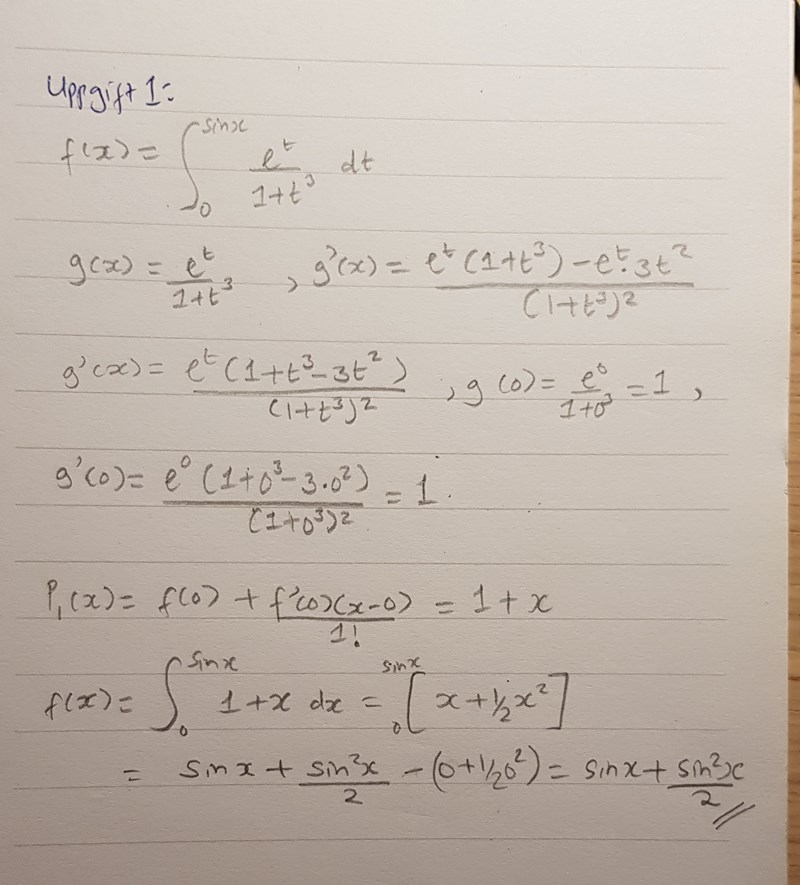 Uppgift 1:
f(x) = ∫₀^sinx e^t/(1+t³) dt
g(x) = e^t/(1+t³) , g'(x) = (e^t(1+t³) - e^t·3t²)/(1+t³)²
g'(x) = e^t(1+t³-3t²)/(1+t³)² , g(0) = e⁰/(1+0³) = 1 ,
g'(0) = e⁰(1+0³-3·0²)/(1+0³)² = 1.
P₁(x) = f(0) + f'(0)(x-0)/1! = 1 + x
f(x) = ∫₀^sinx 1+x dx = ₀^sinx[x + 1/2x²]
= sinx + sin²x/2 - (0+1/2 0²) = sinx + sin²x/2 //